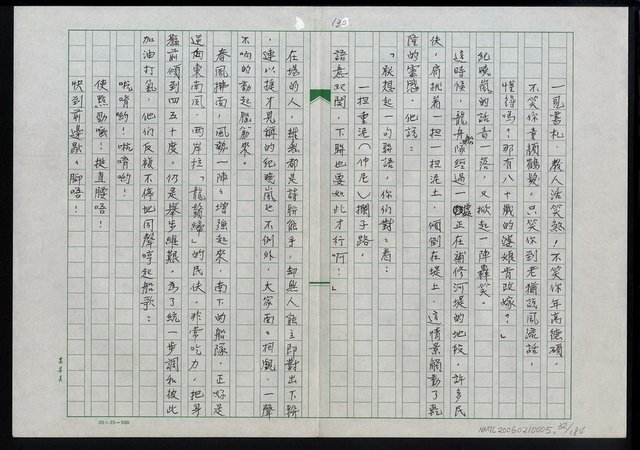 130
一見書札,教人活笑煞!不笑你年高德碩,
不笑你童顏鶴髮,只笑你到老猶說風流話,
懂得嗎?那有八十歲的婆娘肯改嫁?」
紀曉嵐的話音一落,又掀起一陣轟笑。
這時候,龍舟隊經過一處正在補修河堤的地段,許多民
伕,肩挑着一担一担泥土,傾倒在堤上,這情景觸動了乾
隆的靈感,他說:
「朕想起一句聯語,你們對對看:
一担重泥(仲尼)攔子路,
語意双関,下聯也要如此才行啊!」
在場的人,雖然都是詩聯能手,却無人能立即對出下聯
,連以捷才見稱的紀曉嵐也不例外,大家面面相覷,一聲
不响的動起腦筋來。
春風拂面,風勢一陣陣增強起來,南下的船隊,正好是
逆向東南風,两岸拉「龍鬚縴」的民伕,非常吃力,把身
軀前傾到四五十度,仍是舉步維艱,為了統一步調和彼此
加油打氣,他們反複不停地同聲哼起船歌:
吭唷喲!吭唷喲!
使點勁哦!挺直腰唔!
快到前邊歇歇腳唔!
20×25=500
NMTL20060210005, 32/184